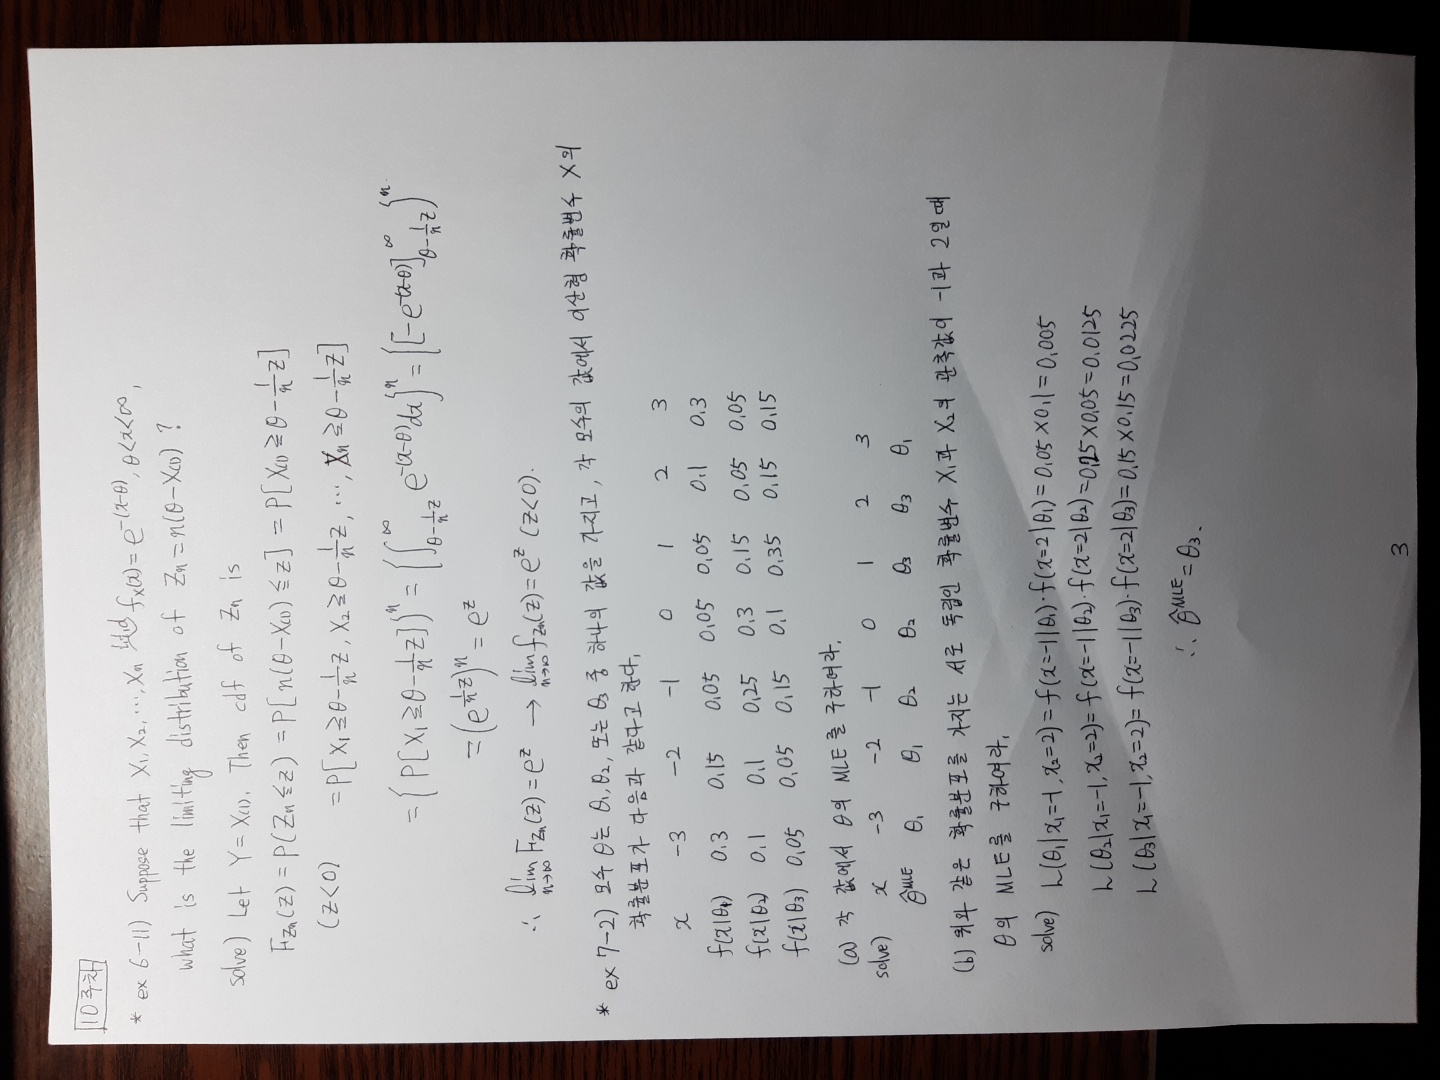 10주차
* ex 6-11) Suppose that X₁, X₂, ⋯, Xₙ iid f_X(x) = e^{-(x-θ)}, θ<x<∞,
what is the limiting distribution of Zₙ = n(θ-X₍₁₎) ?
solve) Let Y = X₍₁₎. Then cdf of Zₙ is
F_{Zₙ}(z) = P(Zₙ ≦ z) = P[n(θ-X₍₁₎) ≦ z] = P[X₍₁₎ ≧ θ - \frac{1}{n}z]
(z<0) = P[X₁ ≧ θ - \frac{1}{n}z, X₂ ≧ θ - \frac{1}{n}z, ⋯, Xₙ ≧ θ - \frac{1}{n}z]
= {P[X₁ ≧ θ - \frac{1}{n}z]}ⁿ = {∫_{θ-\frac{1}{n}z}^{∞} e^{-(x-θ)}dx}ⁿ = {[-e^{-(x-θ)}]_{θ-\frac{1}{n}z}^{∞}}ⁿ.
= (e^{\frac{1}{n}z})ⁿ = e^z
∴ lim_{n→∞} F_{Zₙ}(z) = e^z → lim_{n→∞} f_{Zₙ}(z) = e^z (z<0).
* ex 7-2) 모수 θ는 θ₁, θ₂, 또는 θ₃ 중 하나의 값을 가지고, 각 모수의 값에서 이산형 확률변수 X의
확률분포가 다음과 같다고 한다.
x -3 -2 -1 0 1 2 3
f(x|θ₁) 0.3 0.15 0.05 0.05 0.05 0.1 0.3
f(x|θ₂) 0.1 0.1 0.25 0.3 0.15 0.05 0.05
f(x|θ₃) 0.05 0.05 0.15 0.1 0.35 0.15 0.15
(a) 각 값에서 θ의 MLE를 구하여라.
solve) x -3 -2 -1 0 1 2 3
θ̂^{MLE} θ₁ θ₁ θ₂ θ₂ θ₃ θ₃ θ₁
(b) 위와 같은 확률분포를 가지는 서로 독립인 확률변수 X₁과 X₂의 관측값이 -1과 2일 때
θ의 MLE를 구하여라.
solve) L(θ₁|x₁=-1, x₂=2) = f(x=-1|θ₁)·f(x=2|θ₁) = 0.05×0.1 = 0.005
L(θ₂|x₁=-1, x₂=2) = f(x=-1|θ₂)·f(x=2|θ₂) = 0.25×0.05 = 0.0125
L(θ₃|x₁=-1, x₂=2) = f(x=-1|θ₃)·f(x=2|θ₃) = 0.15×0.15 = 0.0225
∴ θ̂^{MLE} = θ₃.
3